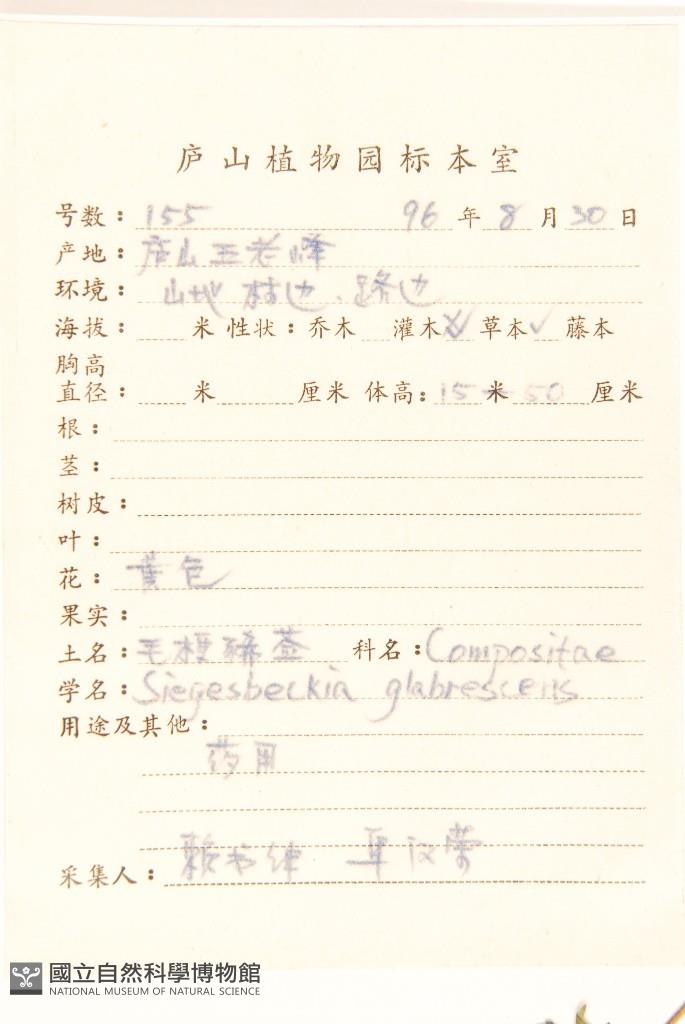 庐山植物园标本室
号数：155 96年8月30日
产地：庐山五老峰
环境：山地 林边、路边
海拔：米 性状：乔木 灌木 草本✓ 藤本
胸高
直径：米 厘米 体高：15米-50厘米
根：
茎：
树皮：
叶：
花：黄色
果实：
土名：毛梗豨莶 科名：Compositae
学名：Siegesbeckia glabrescens
用途及其他：
药用
采集人：赖书绅
國立自然科學博物館
NATIONAL MUSEUM OF NATURAL SCIENCE